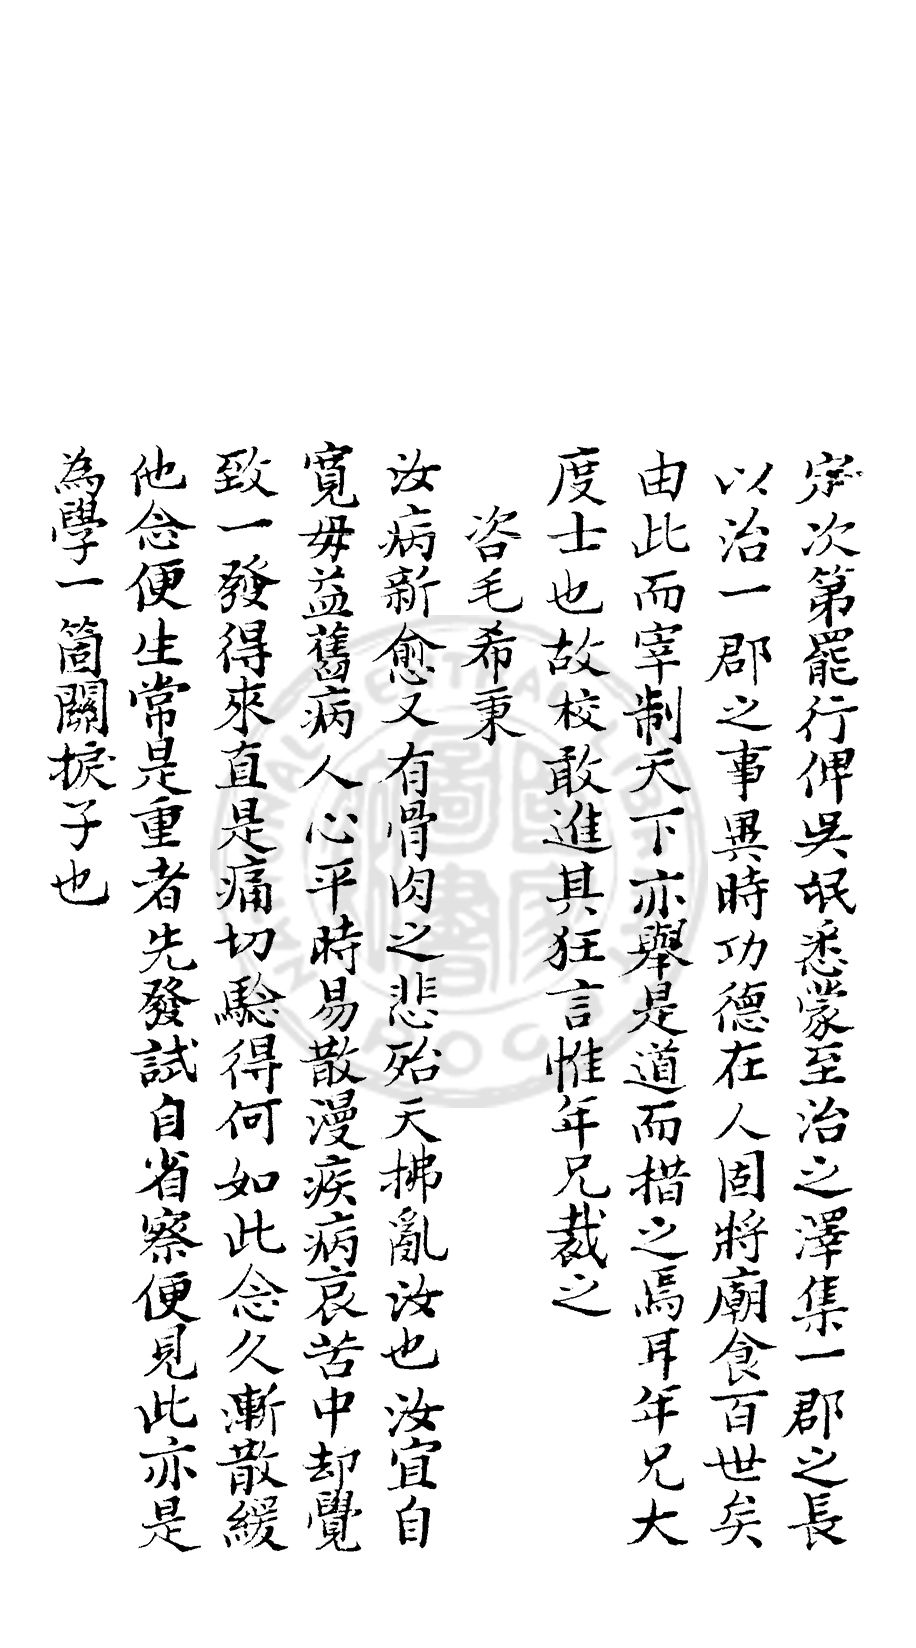 次第罷行俾吳氓悉蒙至治之澤集一郡之長
以治一郡之事異時功德在人固將廟食百世矣
由此而宰制天下亦舉是道而措之焉耳年兄大
度士也故校敢進其狂言惟年兄裁之
咨毛希秉
汝病新愈又有骨肉之悲殆天拂亂汝也汝宜自
寬毋益舊病人心平時易散漫疾病哀苦中却覺
致一發得來直是痛切騐得何如此念久漸散緩
他念便生常是重者先發試自省察便見此亦是
為學一箇關捩子也